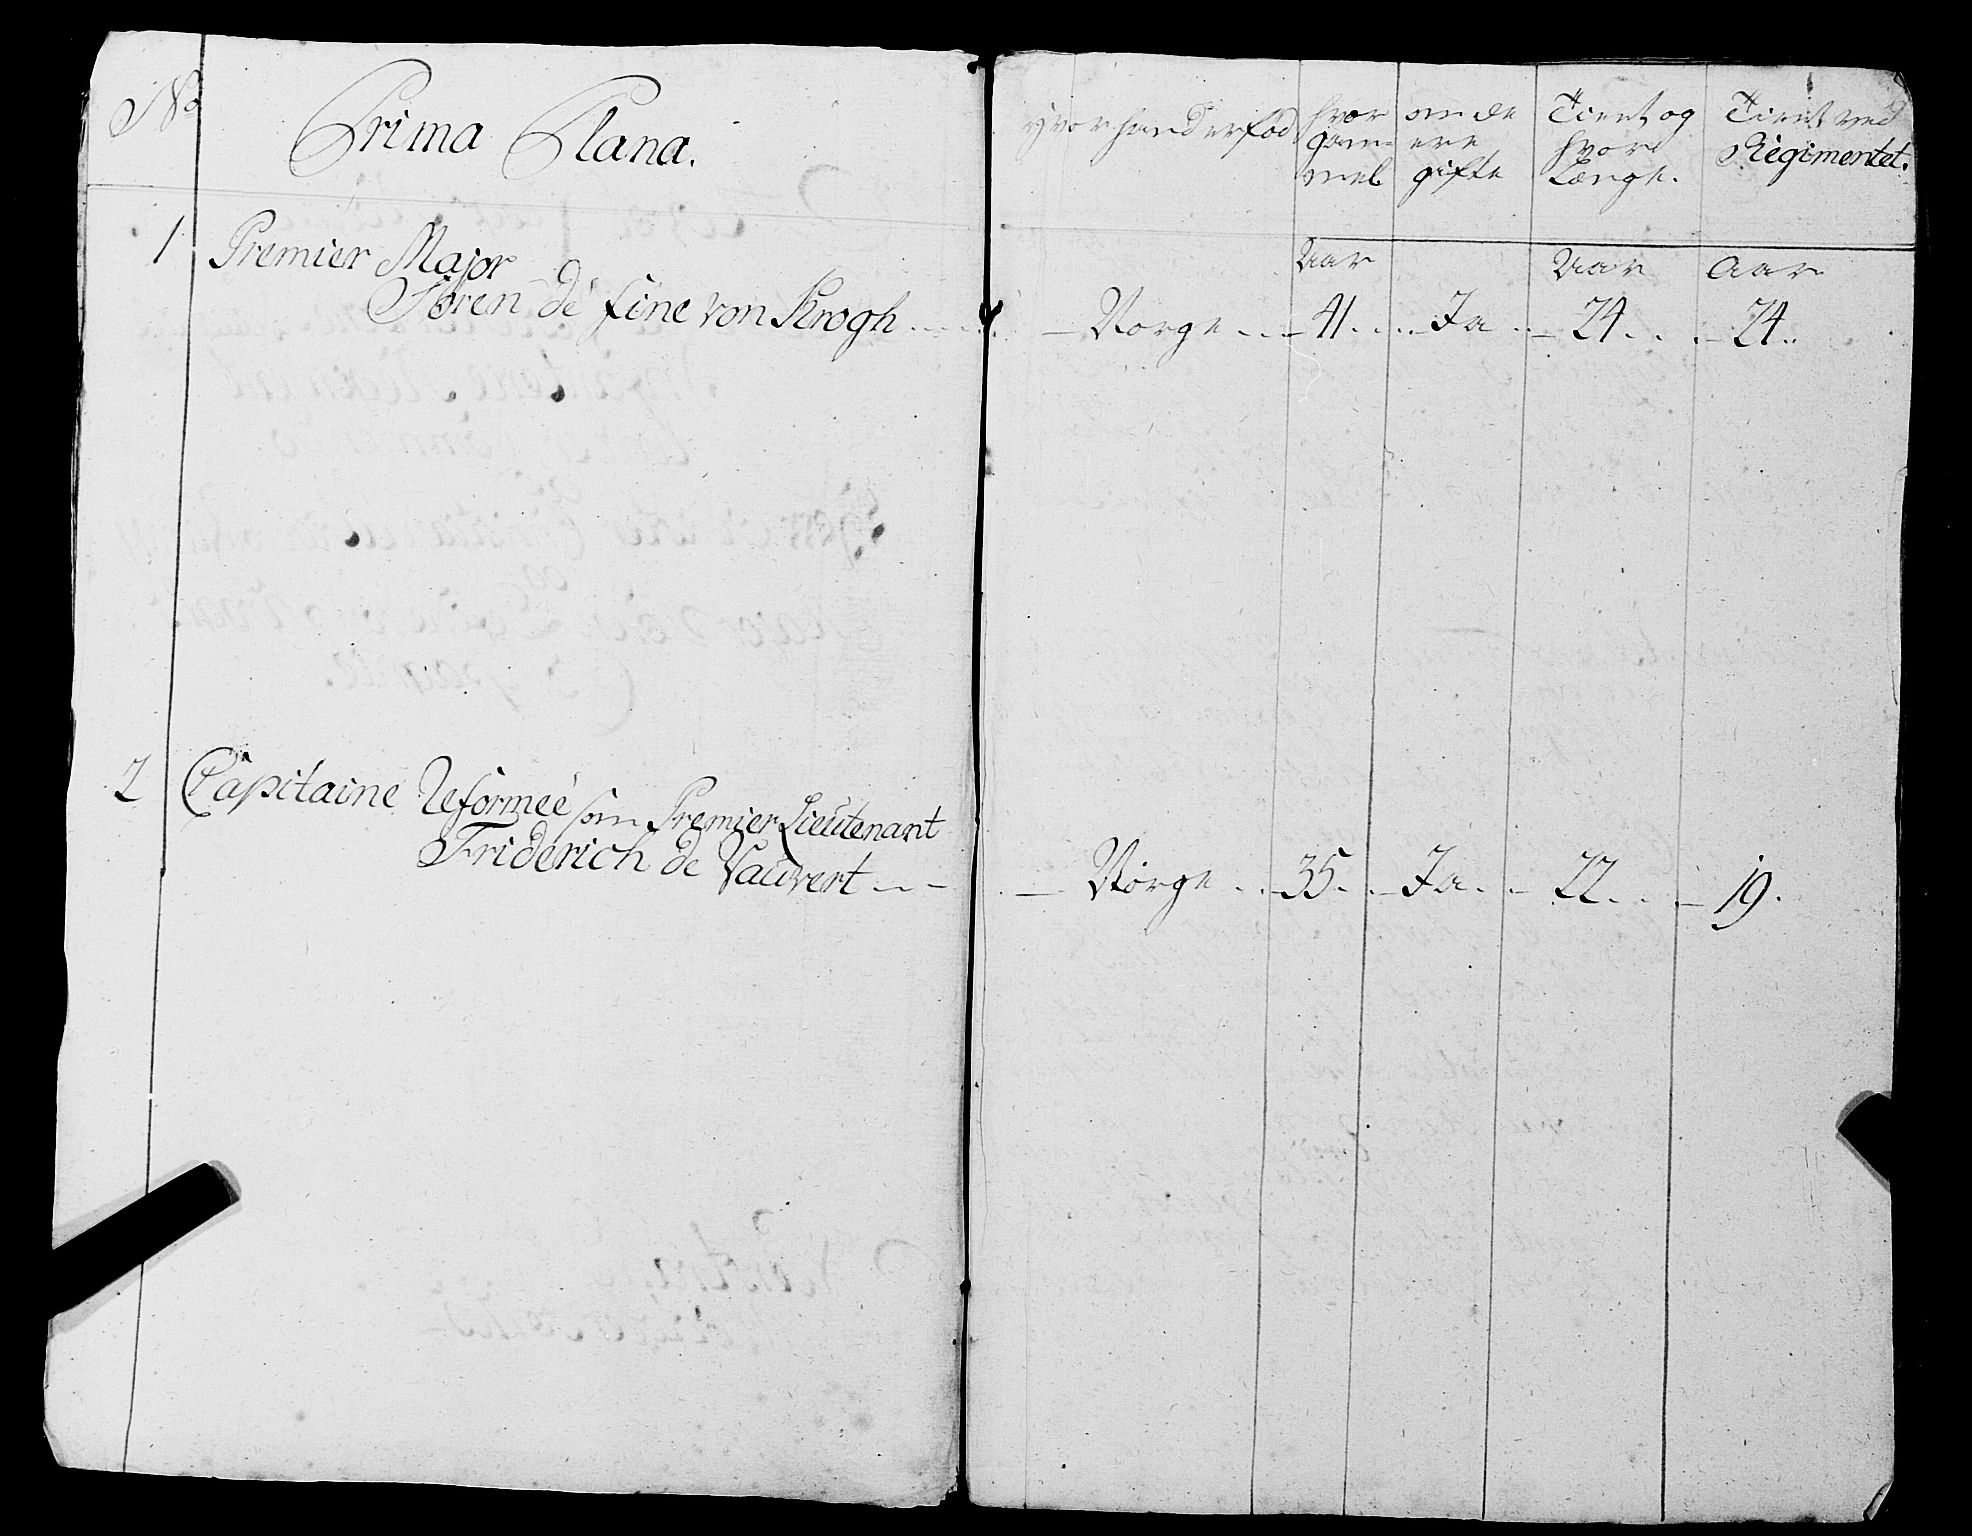 No Prima Plana.
hvor hand er fød
hvor gam= mel
om de ere gifte
Tient og hvor Længe.
Tient ved Regimentet.
Aar Aar Aar
1 Premier Major
Sören de fine von Krogh .... — Norge .. — 41 .... Ja .. — 24 ... — 24 ..
2 Capitaine Reformeé som Premier Lieutenant
Friderich de Vauvert .. — — Norge .. — 35. . — Ja . . — 22 ... — 19.